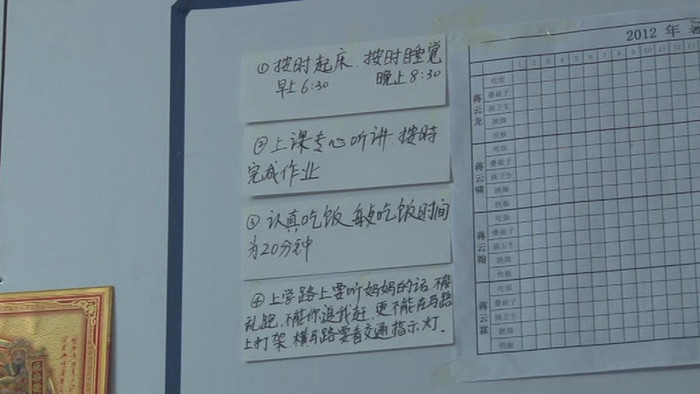 ①按时起床、按时睡觉
早上6:30 晚上8:30
②上课专心听讲、按时
完成作业
③认真吃饭,每点吃饭时间
为20分钟
④上学路上要听妈妈的话,不能
乱跑,不能你追我赶,更不能在马路
上打架,横马路要看交通指示灯.
2012 年
1 2 3 4 5 6 7 8 9 10 11 12
蒋云龙
吃饭
叠被子
搞卫生
跳舞
快板
蒋云啸
吃饭
叠被子
搞卫生
跳舞
快板
蒋云翰
吃饭
叠被子
搞卫生
跳舞
快板
蒋云霖
吃饭
叠被子
搞卫生
跳舞
快板